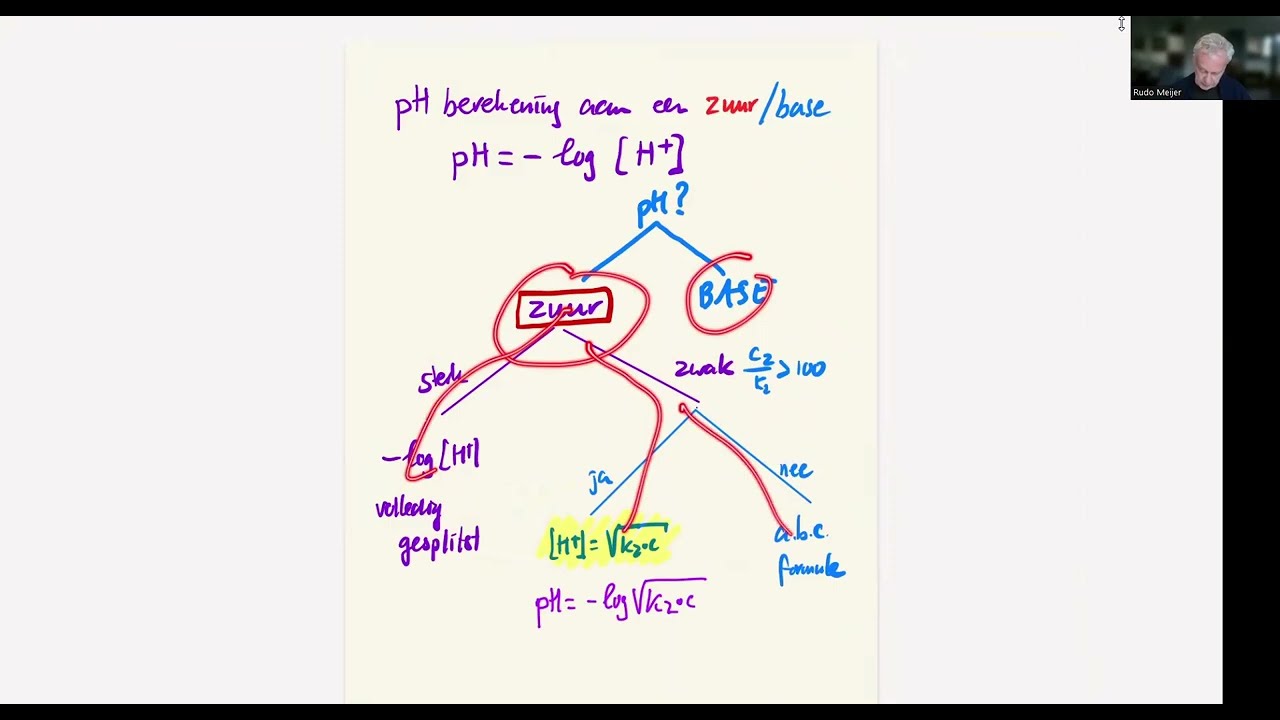 Rudo Meijer
pH berekening aan een zuur/base
pH = - log [H+]
pH?
zuur
BASE
sterk
zwak Cz/Kz > 100
-log [H+]
ja
nee
volledig
gesplitst
[H+] = √Kz•c
a.b.c.
formule
pH = - log √Kz•c